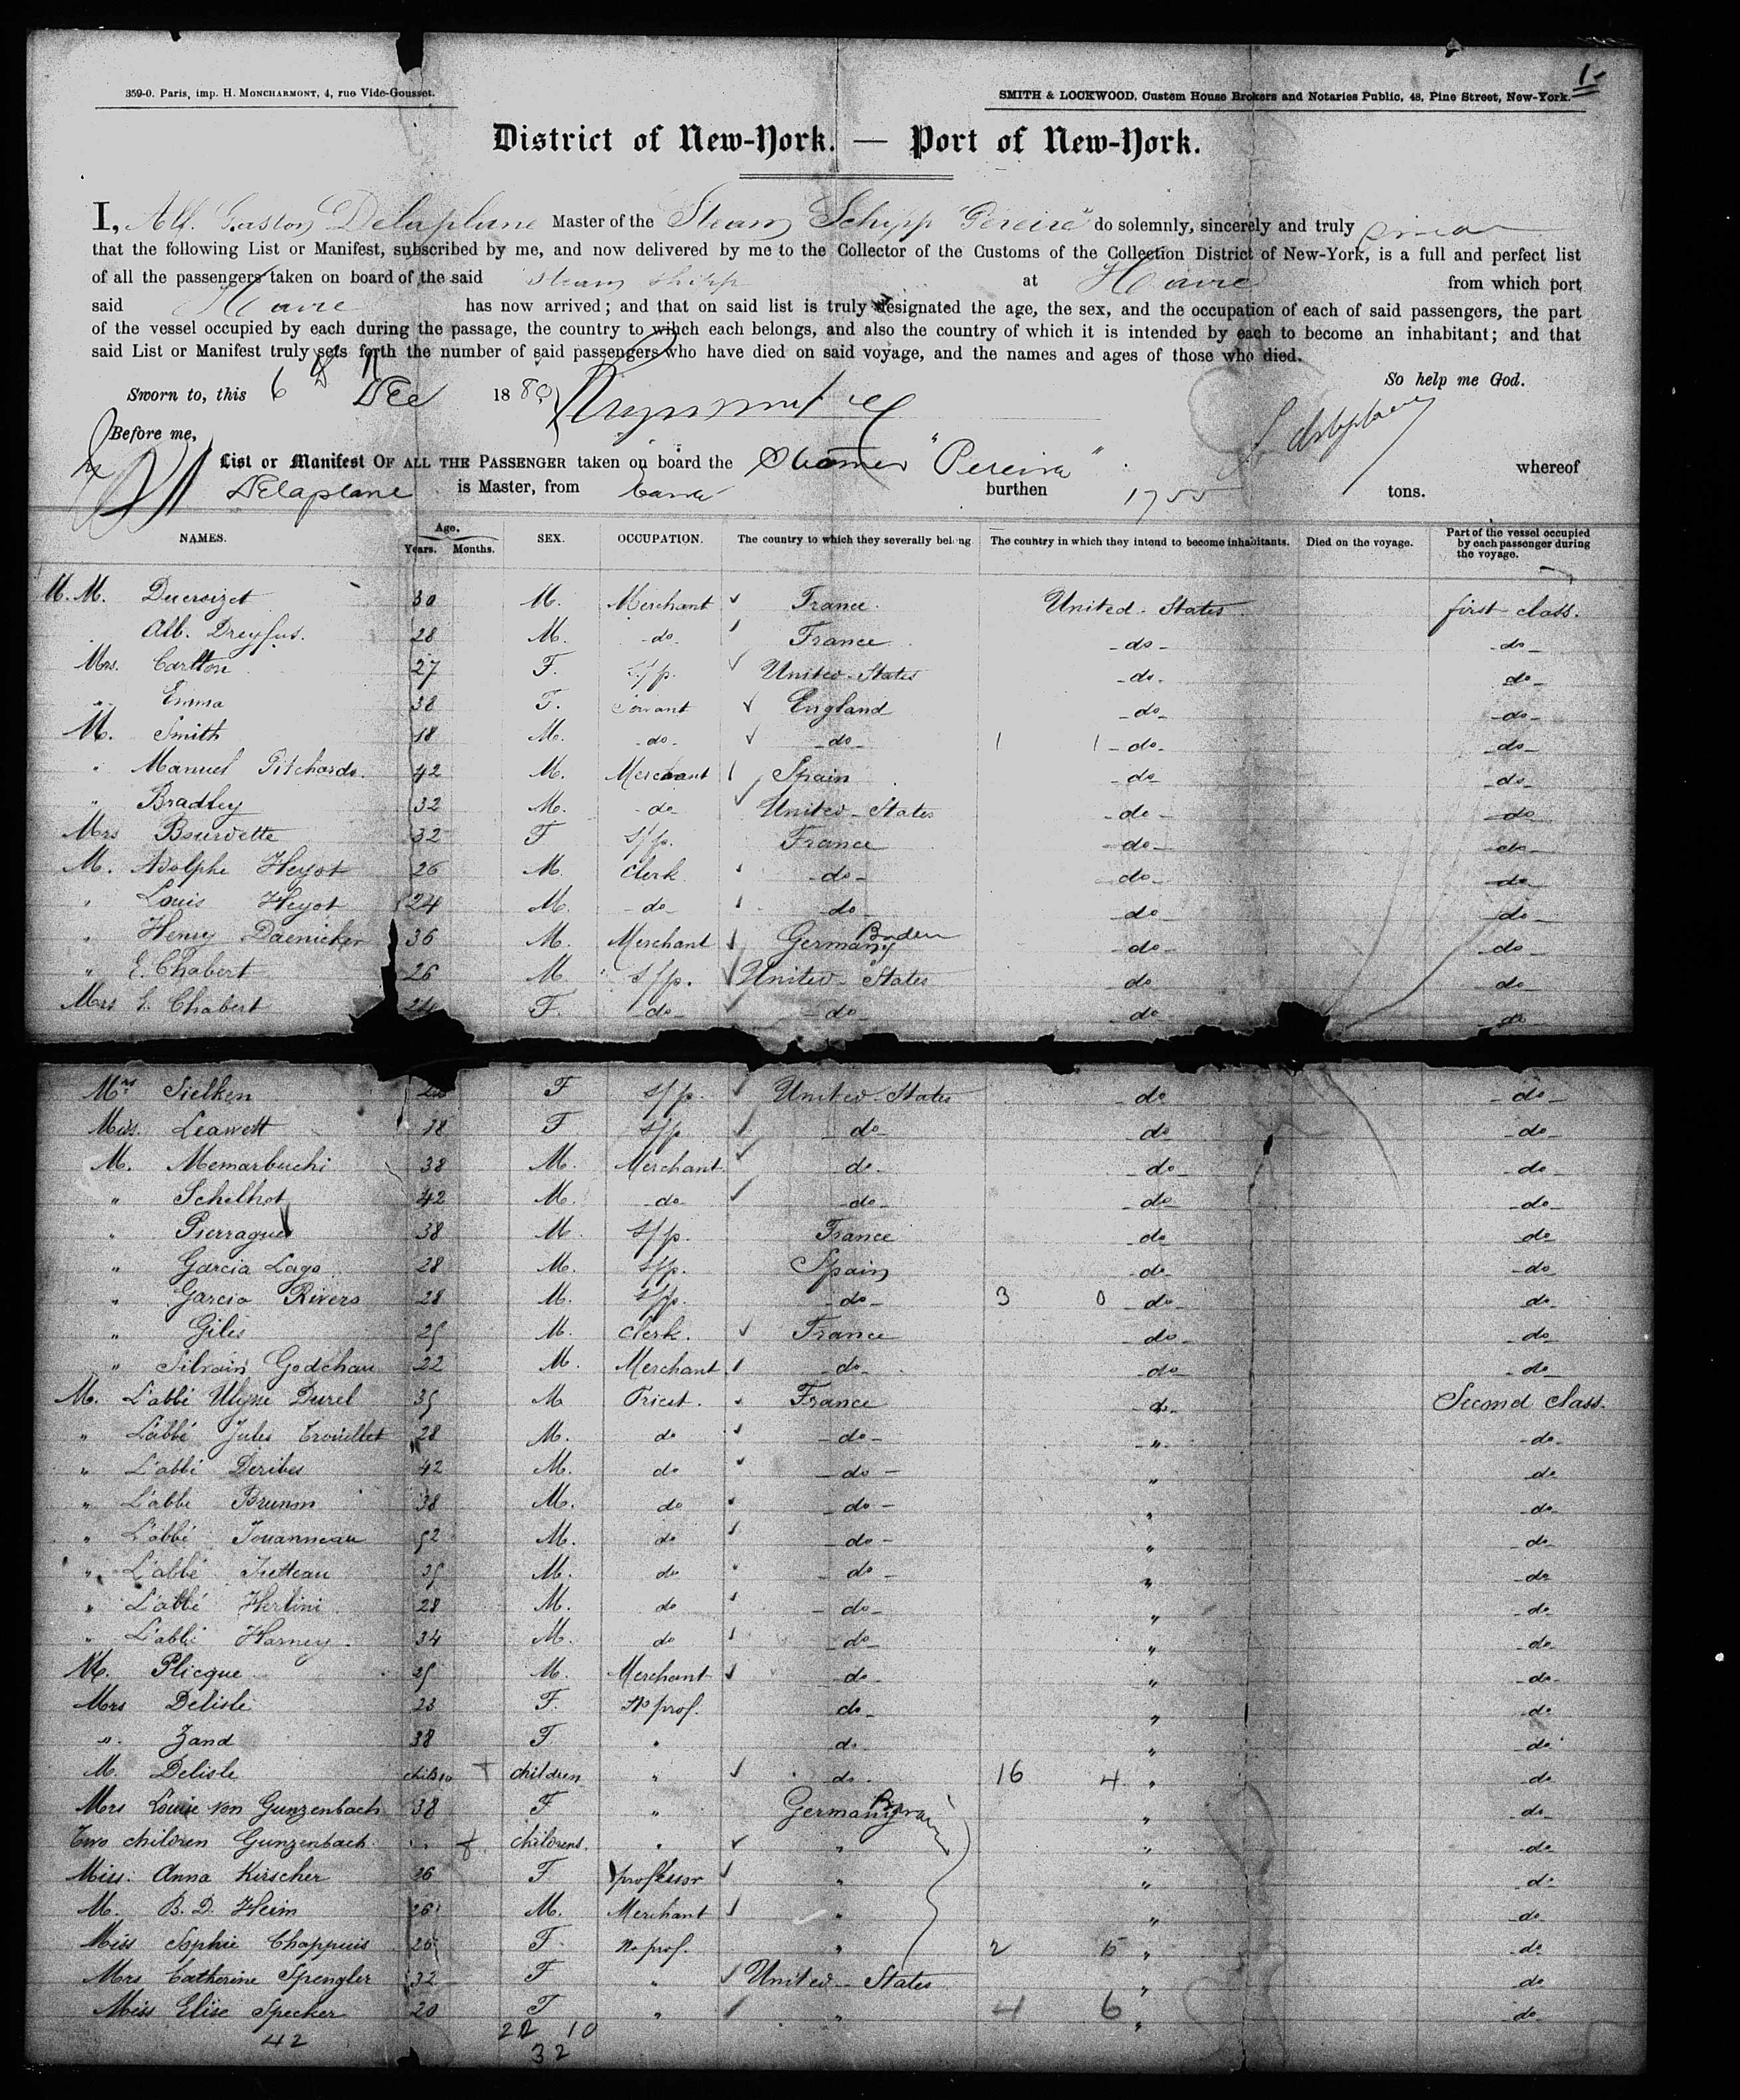 1-
359-0. Paris, imp. H. MONCHARMONT, 4, rue Vide-Gousset.
SMITH & LOCKWOOD, Custem House Brokers and Notaries Public, 48, Pine Street, New-York.
District of New-York. — Port of New-York.
I, Alf. Gaston Delaplane Master of the Steam Schipp "Pereire" do solemnly, sincerely and truly
that the following List or Manifest, subscribed by me, and now delivered by me to the Collector of the Customs of the Collection District of New-York, is a full and perfect list
of all the passengers taken on board of the said Steam Shipp at Havre from which port
said Havre has now arrived; and that on said list is truly designated the age, the sex, and the occupation of each of said passengers, the part
of the vessel occupied by each during the passage, the country to wihch each belongs, and also the country of which it is intended by each to become an inhabitant; and that
said List or Manifest truly sets forth the number of said passengers who have died on said voyage, and the names and ages of those who died.
So help me God.
Sworn to, this 6 Dec 1880
Before me,
List or Manifest OF ALL THE PASSENGER taken on board the Steamer "Pereire" whereof
Delaplane is Master, from Havre burthen 1755 tons.
NAMES. Age. Years. Months. SEX. OCCUPATION. The country to which they severally belong The country in which they intend to become inhabitants. Died on the voyage. Part of the vessel occupied by each passenger during the voyage.
M. M. Ducroizet 30 M. Merchant France. United-States first class.
Alb. Dreyfus. 28 M. -do- France -do- -do-
Mrs. Carlton 27 F. s/p. United-States -do- do-
" Emma 38 F. servant England -do- -do-
M. Smith 18 M. -do- -do- 1 1 -do- -do-
" Manuel Pitchardo. 42 M. Merchant Spain -do- -do-
" Bradley 32 M. -do- United-States -do- -do-
Mrs Bourdette 32 F s/p. France -do- -do-
M. Adolphe Heyot 26 M. clerk -do- do- -do-
" Louis Heyot 24 M. -do- -do- -do- -do-
" Henry Daeniker 36 M. Merchant Germany Baden -do- -do-
" E. Chabert 26 M s/p. United-States do -do-
Mrs E. Chabert 24 F. -do- -do- -do- -do-
Mrs Sielken F s/p. United-States -do -do-
Miss. Leawett 18 F s/p -do- do -do-
M. Memarbuchi 38 M. Merchant do. -do- -do-
" Schelhot 42 M. -do- -do- do- -do-
" Pierragues 38 M. s/p. France do -do
" Garcia Lago 28 M. s/p. Spain -do- -do
" Garcia Rivero 28 M. s/p. -do- 3 0 do- do-
" Giles 25 M. clerk. France do- -do
" Silvain Godchau 22 M. Merchant -do- -do -do-
M. L'abbé Ulysse Durel 35 M Priest. France -do- Second class.
" L'abbé Jules Trouillet 28 M. do -do- -"- -do-
" L'abbé Deribes 42 M. do -do- " do
" L'abbé Brunm 38 M. do -do- " do-
" L'abbé Jouanneau 52 M. do -do- " -do-
" L'abbé Jutteau 35 M. do -do- " -do
" L'abbé Herlini 28 M. do -do- " -do
" L'abbé Harney. 34 M. do -do- " do-
M. Plicque 25 M. Merchant -do- " -do-
Mrs Delisle 23 F. no prof. do- " -do
" Zand 38 F " do- " do
M. Delisle child children " do. 16 4 " do
Mrs Louise von Gunzenbach 38 F " Germany " do-
Two children Gunzenbach childrens. " " " do-
Miss. Anna Kirscher 26 F professor " " do-
M. B. D. Heim 26 M. Merchant " " do-
Miss Sophie Chappuis 26 F. no prof. " 2 15 " do
Mrs Catherine Spengler 32 F " United-States " do
Miss Elise Specker 20 F " " 4 6 " do
42 22 10
32